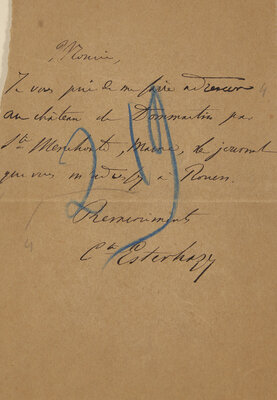 Monsieur,
Je vous prie de me faire adresser 4
au château de Dommartin par
Ste Menehould, Marne, le journal
que vous m'adressez à Rouen.
Remerciements
Cte Esterhazy
29
4